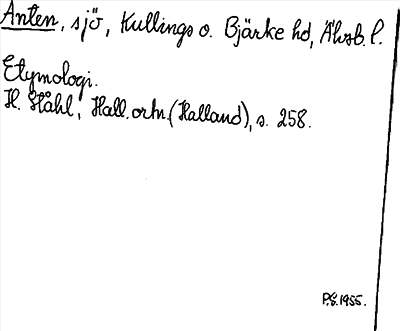 Anten, sjö, Kullings o. Bjärke hd, Älvsb. l.
Etymologi.
H. Ståhl, Hall. ortn. (Halland), s. 258.
P.G. 1955.